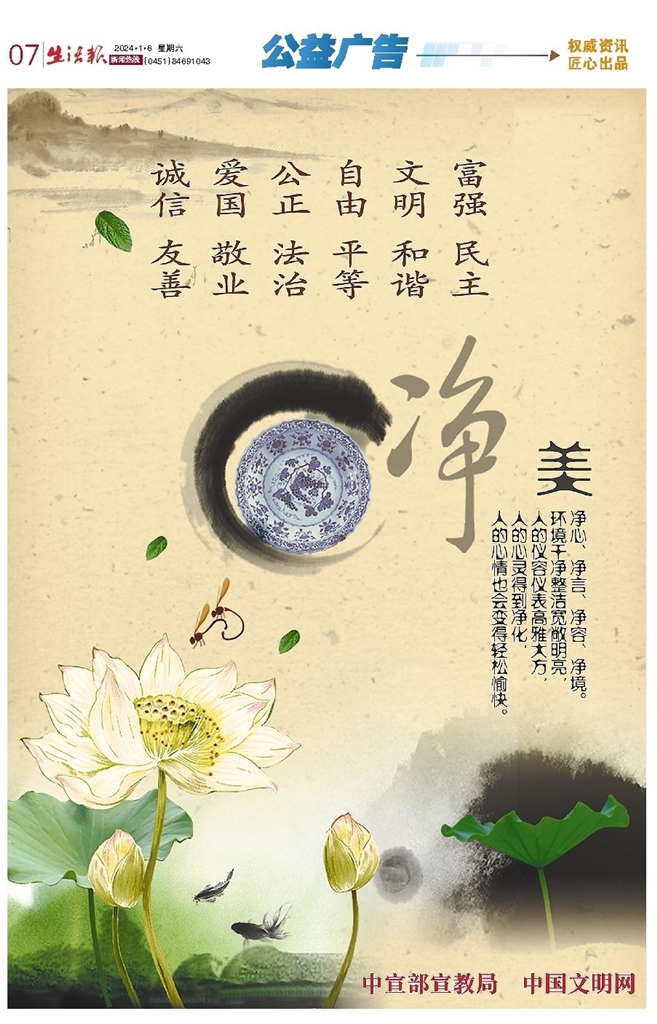 07 生活报 2024·1·6 星期六
新闻热线 (0451)84691043
公益广告
权威资讯
匠心出品
富强 民主
文明 和谐
自由 平等
公正 法治
爱国 敬业
诚信 友善
净
美
净心、净言、净容、净境。
环境干净整洁宽敞明亮，
人的仪容仪表高雅大方，
人的心灵得到净化，
人的心情也会变得轻松愉快。
中宣部宣教局 中国文明网